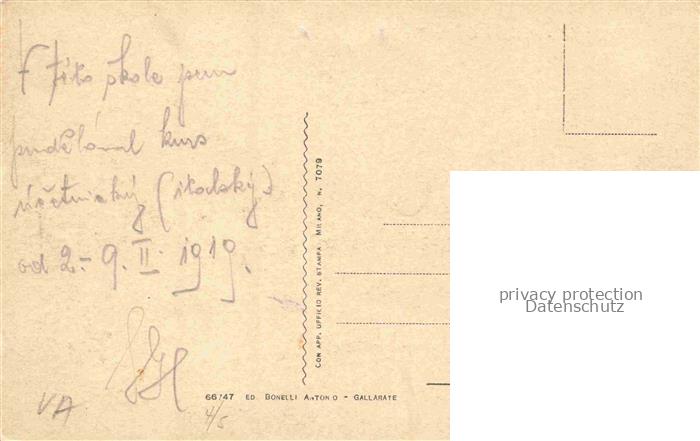 V této škole jsem
prodělával kurs
účetnický (italský)
od 2.-9. II. 1919.
VA
4/5
CON APP. UFFICIO REV. STAMPA MILANO, N. 7079
66747 ED. BONELLI ANTONIO - GALLARATE
privacy protection
Datenschutz